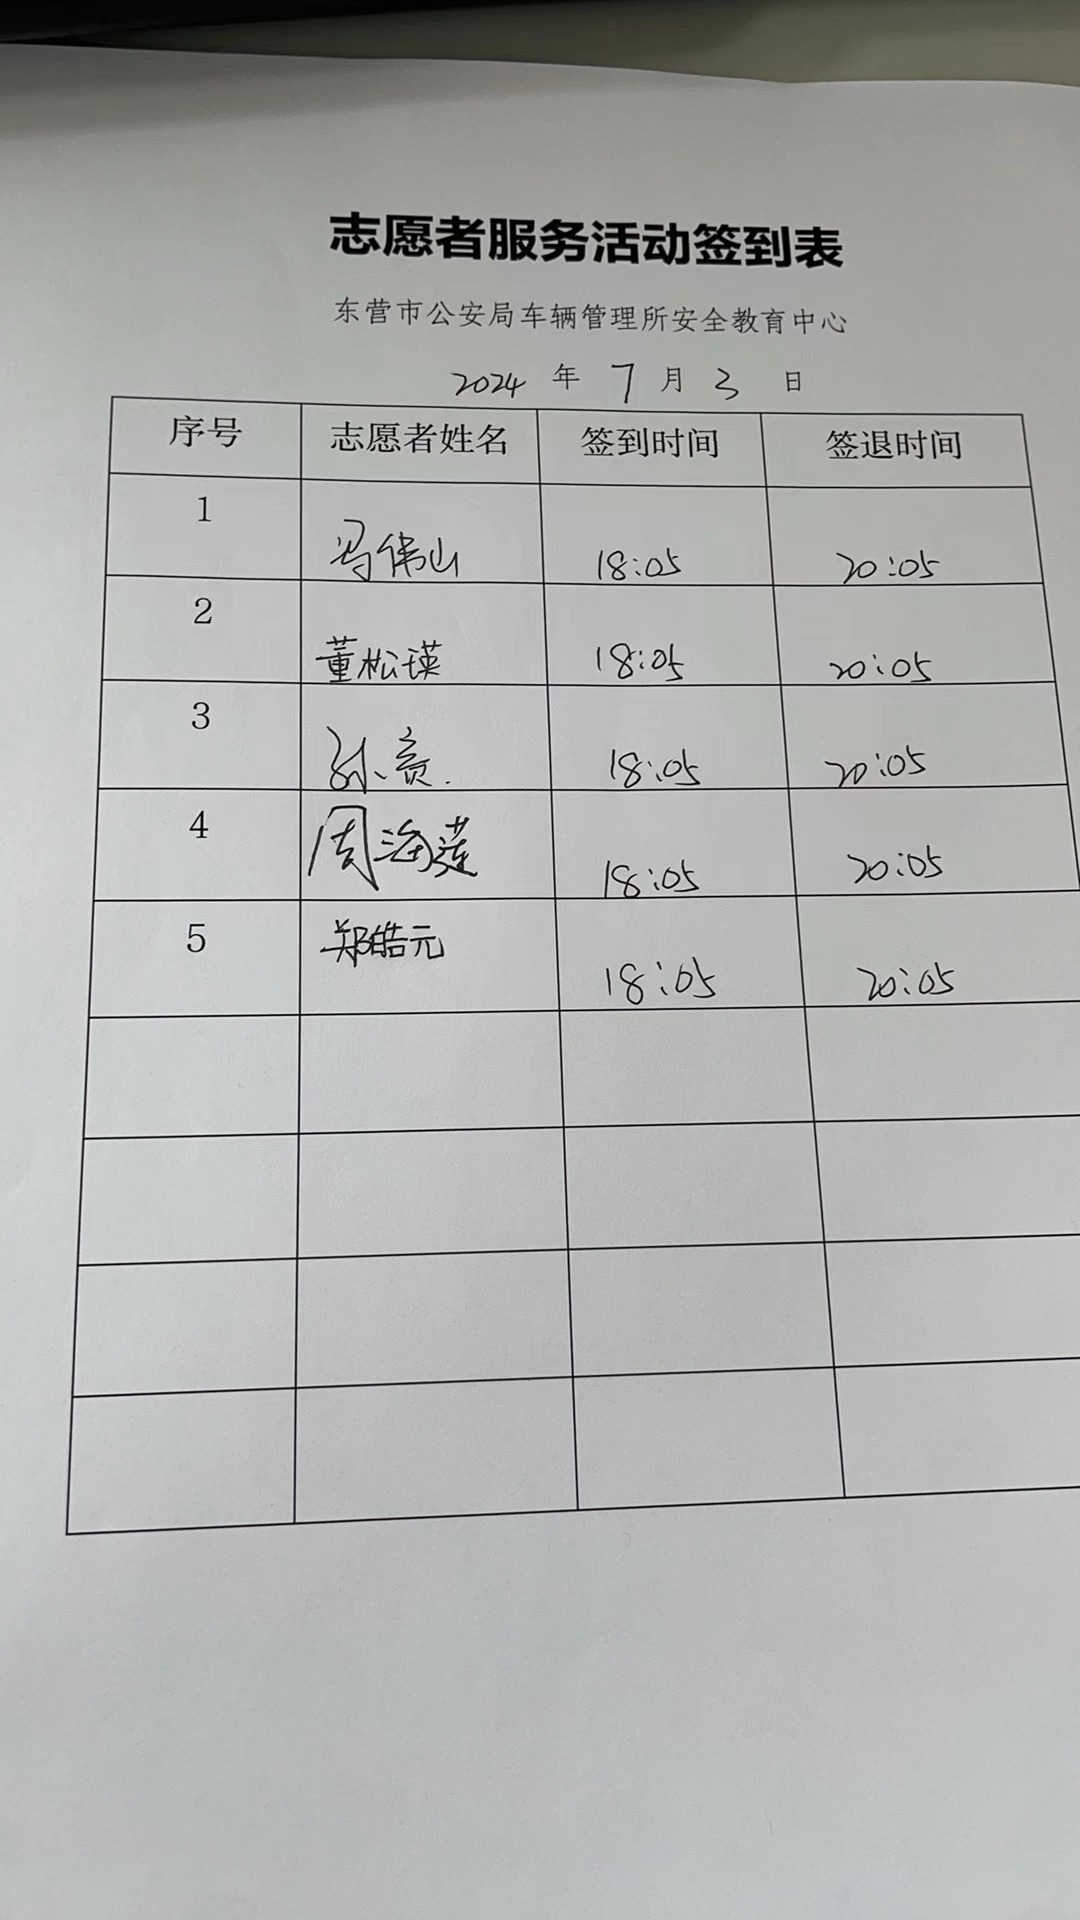 志愿者服务活动签到表
东营市公安局车辆管理所安全教育中心
2024 年 7 月 3 日
序号 志愿者姓名 签到时间 签退时间
1 冯伟山 18:05 20:05
2 董松瑛 18:05 20:05
3 孙 18:05 20:05
4 周海莲 18:05 20:05
5 郑皓元 18:05 20:05